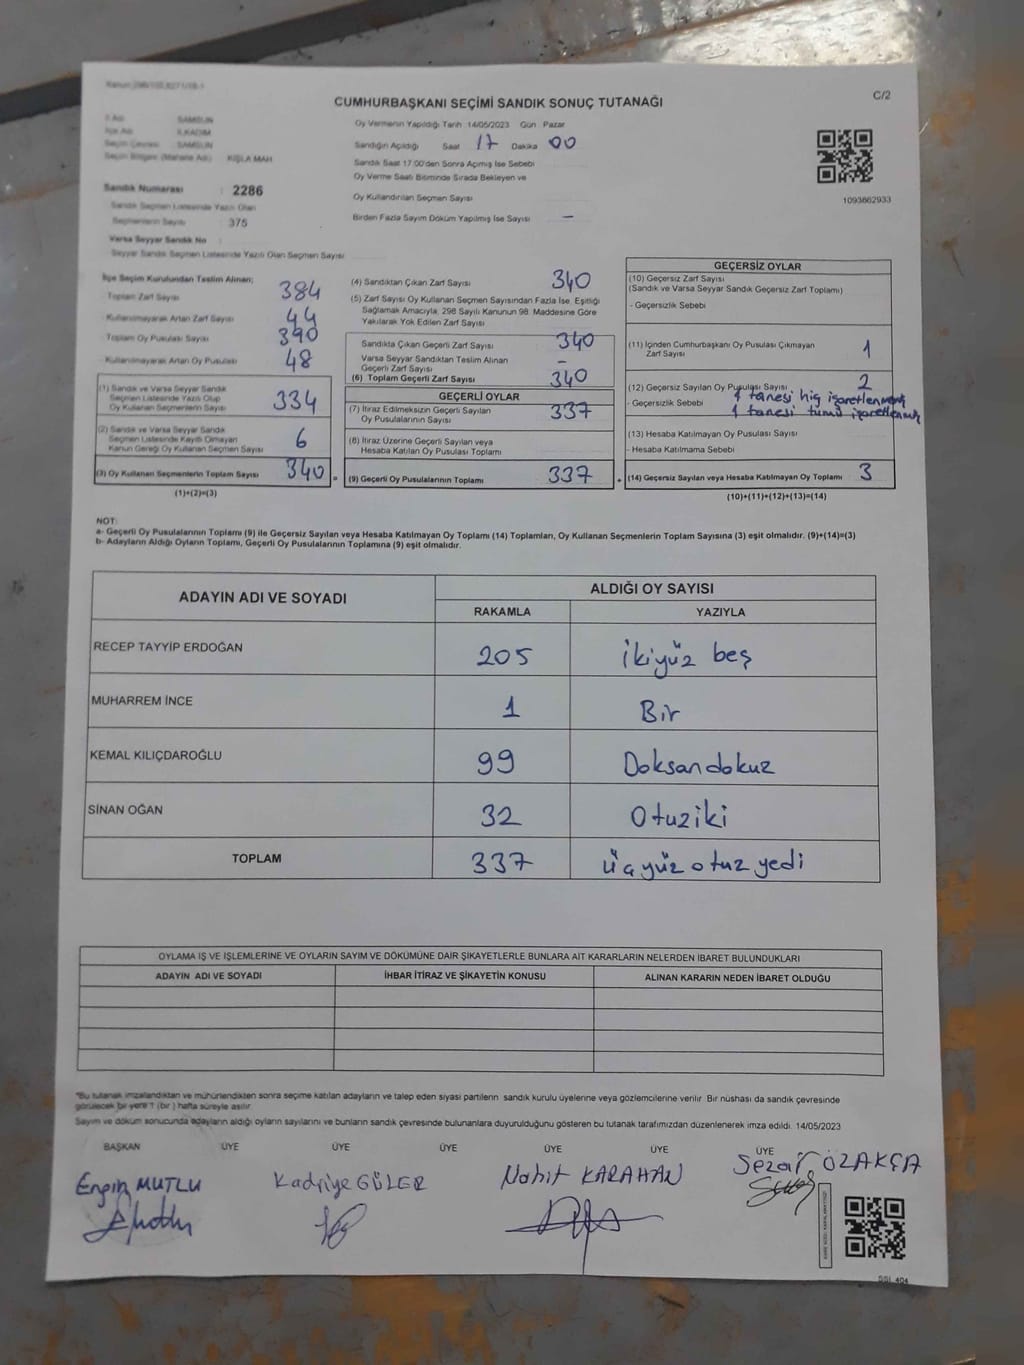 CUMHURBAŞKANI SEÇİMİ SANDIK SONUÇ TUTANAĞI
C/2
İl Adı SAMSUN
İlçe Adı İLKADIM
Seçim Çevresi SAMSUN
Seçim Bölgesi (Mahalle Adı) KIŞLA MAH
Sandık Numarası : 2286
Sandık Seçmen Listesinde Yazılı Olan
Seçmenlerin Sayısı : 375
Varsa Seyyar Sandık No :
Seyyar Sandık Seçmen Listesinde Yazılı Olan Seçmen Sayısı:
Oy Vermenin Yapıldığı Tarih 14/05/2023 Gün Pazar
Sandığın Açıldığı Saat 17 Dakika 00
Sandık Saat 17:00'den Sonra Açımış İse Sebebi
Oy Verme Saati Bitiminde Sırada Bekleyen ve
Oy Kullandırılan Seçmen Sayısı
Birden Fazla Sayım Döküm Yapılmış İse Sayısı –
1093662933
İlçe Seçim Kurulundan Teslim Alınan;
- Toplam Zarf Sayısı 384
- Kullanılmayarak Artan Zarf Sayısı 44
- Toplam Oy Pusulası Sayısı 390
- Kullanılmayarak Artan Oy Pusulası 48
(1) Sandık ve Varsa Seyyar Sandık
Seçmen Listesinde Yazılı Olup
Oy Kullanan Seçmenlerin Sayısı 334
(2) Sandık ve Varsa Seyyar Sandık
Seçmen Listesinde Kayıtlı Olmayan
Kanun Gereği Oy Kullanan Seçmen Sayısı 6
(3) Oy Kullanan Seçmenlerin Toplam Sayısı 340 =
(1)+(2)=(3)
(4) Sandıktan Çıkan Zarf Sayısı 340
(5) Zarf Sayısı Oy Kullanan Seçmen Sayısından Fazla İse, Eşitliği
Sağlamak Amacıyla, 298 Sayılı Kanunun 98. Maddesine Göre
Yakılarak Yok Edilen Zarf Sayısı
Sandıkta Çıkan Geçerli Zarf Sayısı 340
Varsa Seyyar Sandıktan Teslim Alınan
Geçerli Zarf Sayısı –
(6) Toplam Geçerli Zarf Sayısı 340
GEÇERLİ OYLAR
(7) İtiraz Edilmeksizin Geçerli Sayılan
Oy Pusulalarının Sayısı 337
(8) İtiraz Üzerine Geçerli Sayılan veya
Hesaba Katılan Oy Pusulası Toplamı
(9) Geçerli Oy Pusulalarının Toplamı 337 +
GEÇERSİZ OYLAR
(10) Geçersiz Zarf Sayısı
(Sandık ve Varsa Seyyar Sandık Geçersiz Zarf Toplamı)
- Geçersizlik Sebebi
(11) İçinden Cumhurbaşkanı Oy Pusulası Çıkmayan
Zarf Sayısı 1
(12) Geçersiz Sayılan Oy Pusulası Sayısı 2
- Geçersizlik Sebebi 1 tanesi hiç işaretlenmemiş
1 tanesi tümü işaretlenmiş
(13) Hesaba Katılmayan Oy Pusulası Sayısı
- Hesaba Katılmama Sebebi
(14) Geçersiz Sayılan veya Hesaba Katılmayan Oy Toplamı 3
(10)+(11)+(12)+(13)=(14)
NOT:
a- Geçerli Oy Pusulalarının Toplamı (9) ile Geçersiz Sayılan veya Hesaba Katılmayan Oy Toplamı (14) Toplamları, Oy Kullanan Seçmenlerin Toplam Sayısına (3) eşit olmalıdır. (9)+(14)=(3)
b- Adayların Aldığı Oyların Toplamı, Geçerli Oy Pusulalarının Toplamına (9) eşit olmalıdır.
ADAYIN ADI VE SOYADI
ALDIĞI OY SAYISI
RAKAMLA YAZIYLA
RECEP TAYYİP ERDOĞAN 205 İkiyüz beş
MUHARREM İNCE 1 Bir
KEMAL KILIÇDAROĞLU 99 Doksandokuz
SİNAN OĞAN 32 Otuziki
TOPLAM 337 üçyüz otuz yedi
OYLAMA İŞ VE İŞLEMLERİNE VE OYLARIN SAYIM VE DÖKÜMÜNE DAİR ŞİKAYETLERLE BUNLARA AİT KARARLARIN NELERDEN İBARET BULUNDUKLARI
ADAYIN ADI VE SOYADI İHBAR İTİRAZ VE ŞİKAYETİN KONUSU ALINAN KARARIN NEDEN İBARET OLDUĞU
*Bu tutanak imzalandıktan ve mühürlendikten sonra seçime katılan adayların ve talep eden siyasi partilerin sandık kurulu üyelerine veya gözlemcilerine verilir. Bir nüshası da sandık çevresinde
görülecek bir yere 1 (bir) hafta süreyle asılır.
Sayım ve döküm sonucunda adayların aldığı oyların sayılarını ve bunların sandık çevresinde bulunanlara duyurulduğunu gösteren bu tutanak tarafımızdan düzenlenerek imza edildi. 14/05/2023
BAŞKAN ÜYE ÜYE ÜYE ÜYE ÜYE ÜYE
Engin MUTLU Kadriye GÜLER Nahit KARAHAN Sezai ÖZAKÇA
SSI_404